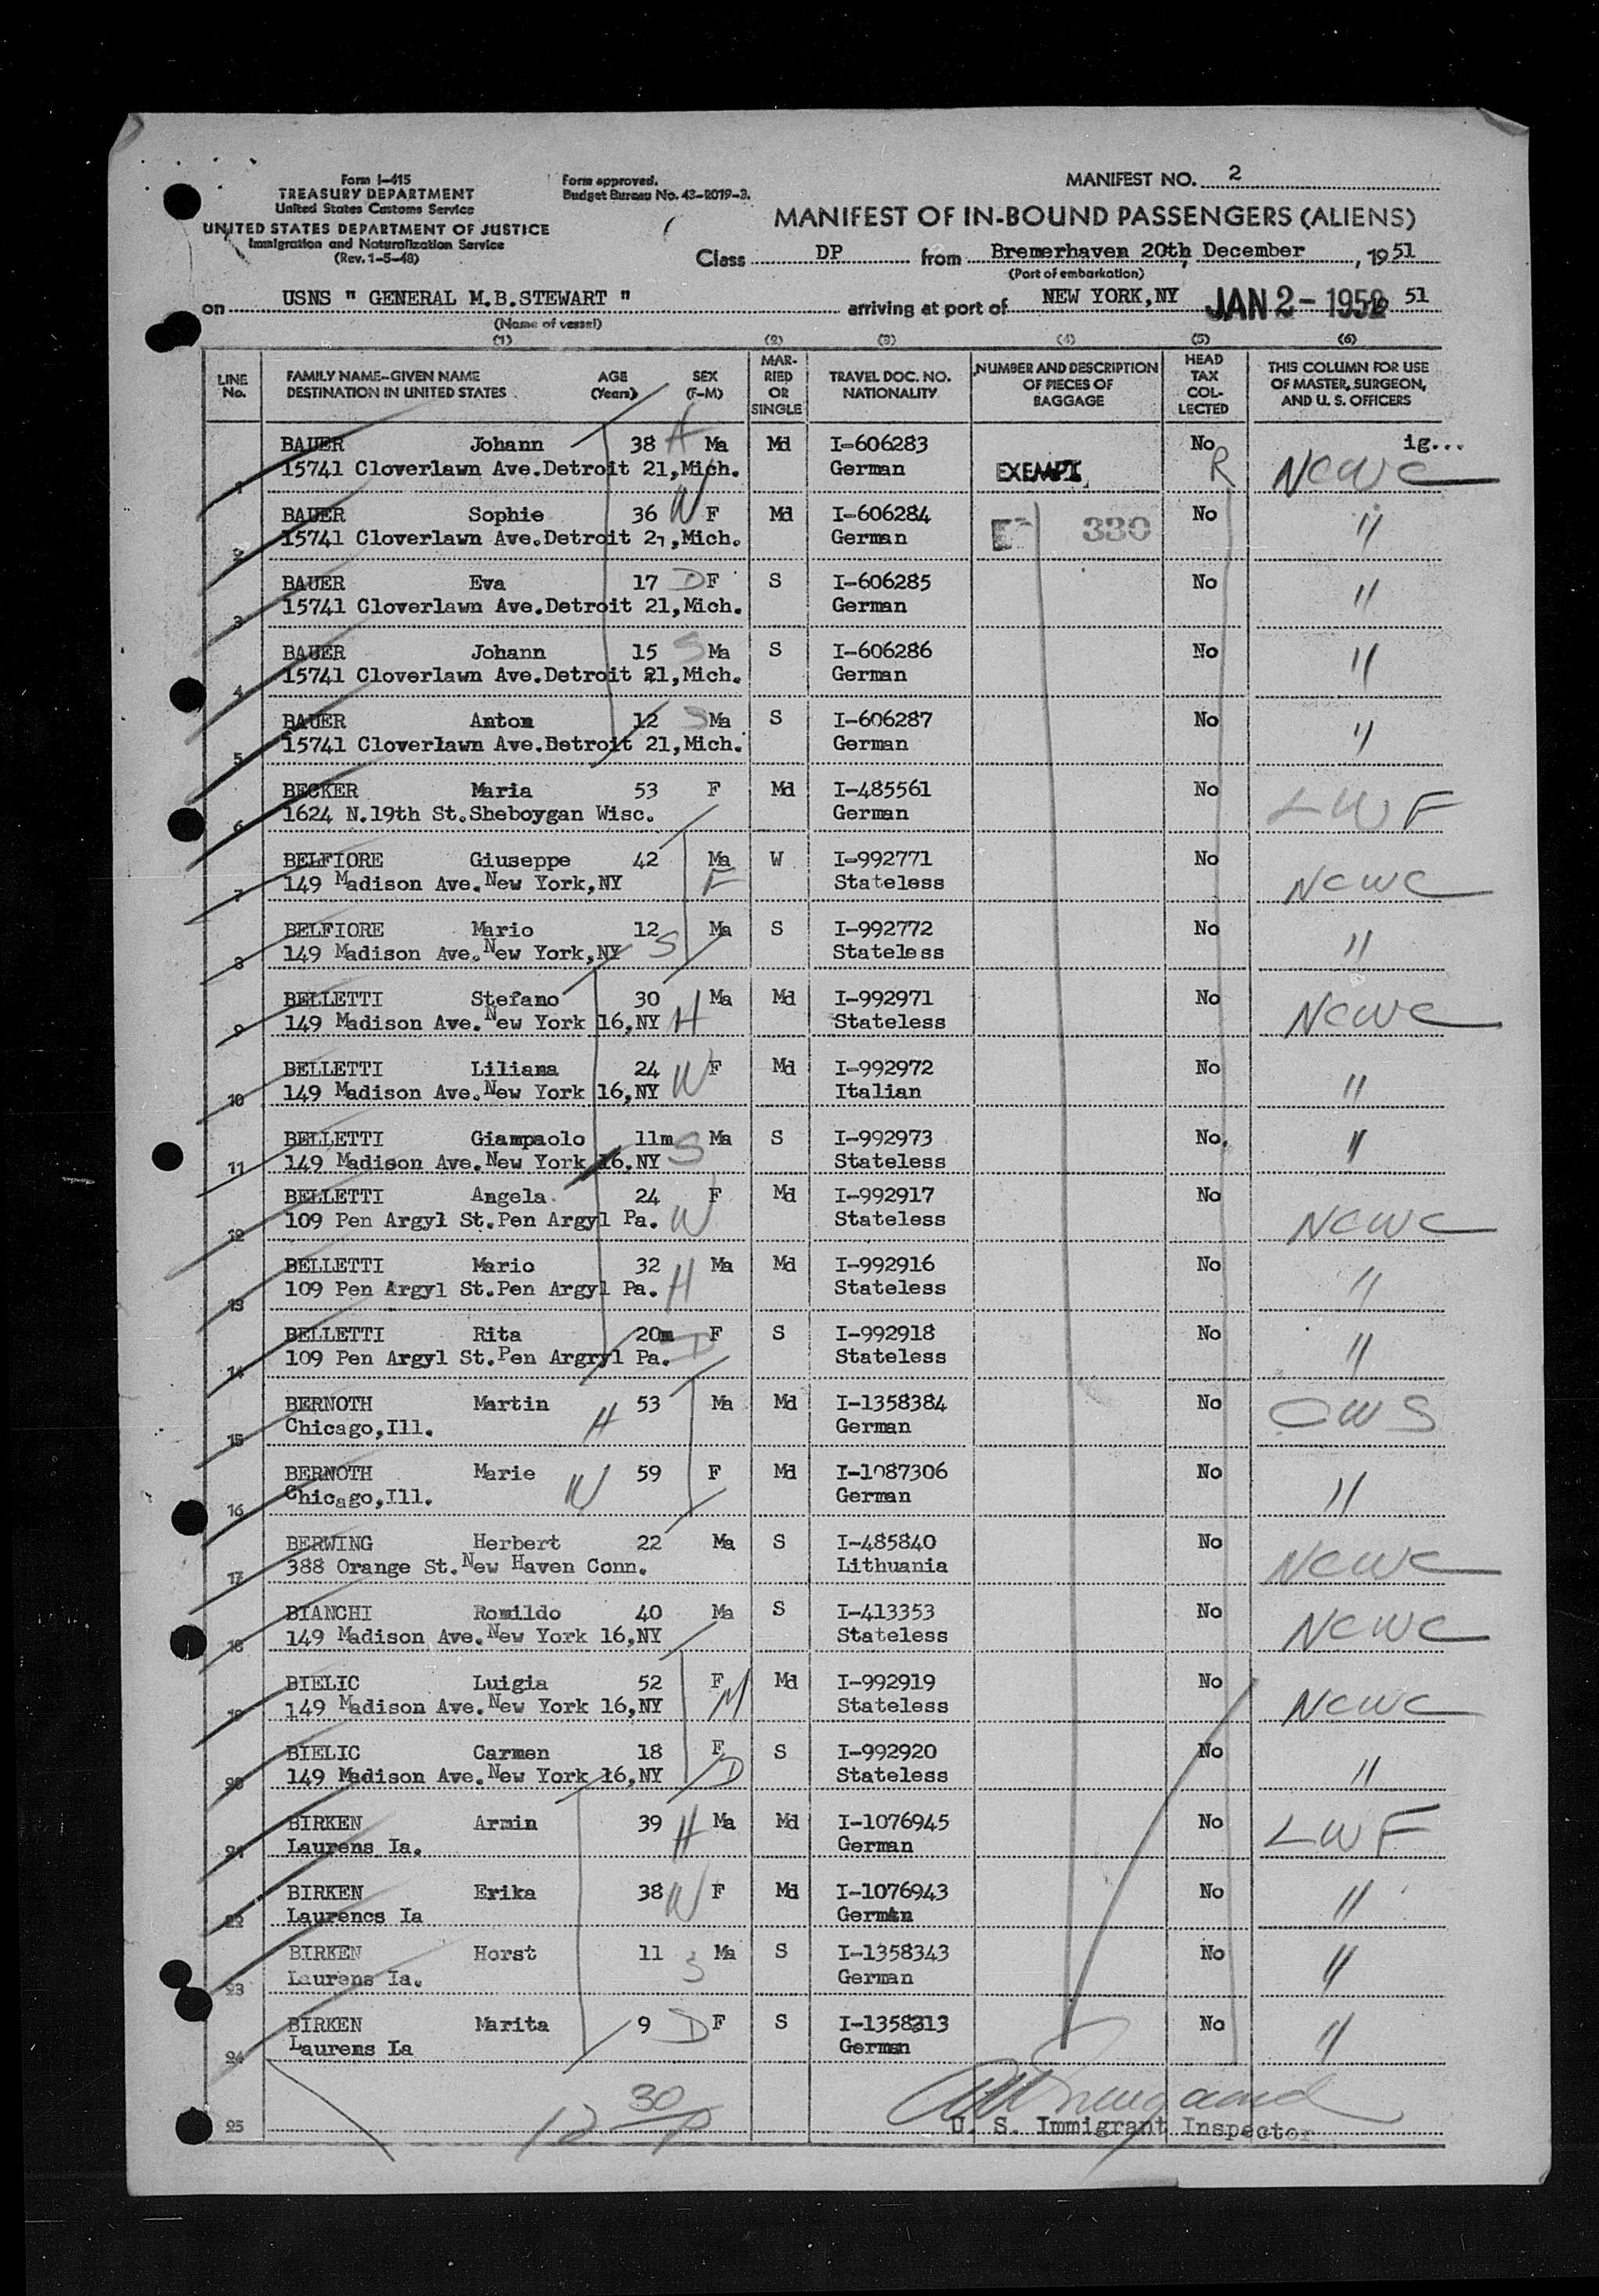 Form I-415
TREASURY DEPARTMENT
United States Customs Service
UNITED STATES DEPARTMENT OF JUSTICE
Immigration and Naturalization Service
(Rev. 1-5-48)
Form approved.
Budget Bureau No. 43-R019-3.
MANIFEST NO. 2
MANIFEST OF IN-BOUND PASSENGERS (ALIENS)
Class DP from Bremerhaven 20th, December, 1951
(Port of embarkation)
on USNS " GENERAL M.B.STEWART " arriving at port of NEW YORK,NY JAN 2 - 1952 51
(Name of vessel)
(1) (2) (3) (4) (5) (6)
LINE No. FAMILY NAME-GIVEN NAME DESTINATION IN UNITED STATES AGE (Years) SEX (F-M) MARRIED OR SINGLE TRAVEL DOC. NO. NATIONALITY NUMBER AND DESCRIPTION OF PIECES OF BAGGAGE HEAD TAX COLLECTED THIS COLUMN FOR USE OF MASTER, SURGEON, AND U. S. OFFICERS
BAUER Johann 38 H Ma Md I-606283 No ig...
1 15741 Cloverlawn Ave.Detroit 21,Mich. German EXEMPT R NCWC
BAUER Sophie 36 W F Md I-606284 330 No "
2 15741 Cloverlawn Ave.Detroit 21,Mich. German
BAUER Eva 17 D F S I-606285 No "
3 15741 Cloverlawn Ave.Detroit 21,Mich. German
BAUER Johann 15 S Ma S I-606286 No "
4 15741 Cloverlawn Ave.Detroit 21,Mich. German
BAUER Anton 12 S Ma S I-606287 No "
5 15741 Cloverlawn Ave.Detroit 21,Mich. German
BECKER Maria 53 F Md I-485561 No LWF
6 1624 N.19th St.Sheboygan Wisc. German
BELFIORE Giuseppe 42 Ma W I-992771 No
7 149 Madison Ave.New York,NY F Stateless NCWC
BELFIORE Mario 12 Ma S I-992772 No
8 149 Madison Ave.New York,NY S Stateless "
BELLETTI Stefano 30 Ma Md I-992971 No
9 149 Madison Ave.New York 16,NY H Stateless NCWC
BELLETTI Liliana 24 W F Md I-992972 No
10 149 Madison Ave.New York 16,NY Italian "
BELLETTI Giampaolo 11m Ma S I-992973 No. "
11 149 Madison Ave.New York 16,NY S Stateless
BELLETTI Angela 24 F Md I-992917 No
12 109 Pen Argyl St.Pen Argyl Pa. W Stateless NCWC
BELLETTI Mario 32 Ma Md I-992916 No
13 109 Pen Argyl St.Pen Argyl Pa. H Stateless "
BELLETTI Rita 20m F S I-992918 No
14 109 Pen Argyl St.Pen Argryl Pa. D Stateless "
BERNOTH Martin 53 Ma Md I-1358384 No CWS
15 Chicago,Ill. H German
BERNOTH Marie 59 F Md I-1087306 No
16 Chicago,Ill. W German "
BERWING Herbert 22 Ma S I-485840 No
17 388 Orange St.New Haven Conn. Lithuania NCWC
BIANCHI Romildo 40 Ma S I-413353 No
18 149 Madison Ave.New York 16,NY Stateless NCWC
BIELIC Luigia 52 F Md I-992919 No
19 149 Madison Ave.New York 16,NY M Stateless NCWC
BIELIC Carmen 18 F S I-992920 No
20 149 Madison Ave.New York 16,NY D Stateless "
BIRKEN Armin 39 H Ma Md I-1076945 No LWF
21 Laurens Ia. German
BIRKEN Erika 38 W F Md I-1076943 No "
22 Laurencs Ia German
BIRKEN Horst 11 Ma S I-1358343 No "
23 Laurens Ia. S German
BIRKEN Marita 9 D F S I-1358313 No "
24 Laurens Ia German
12 30/P
25 U. S. Immigrant Inspector